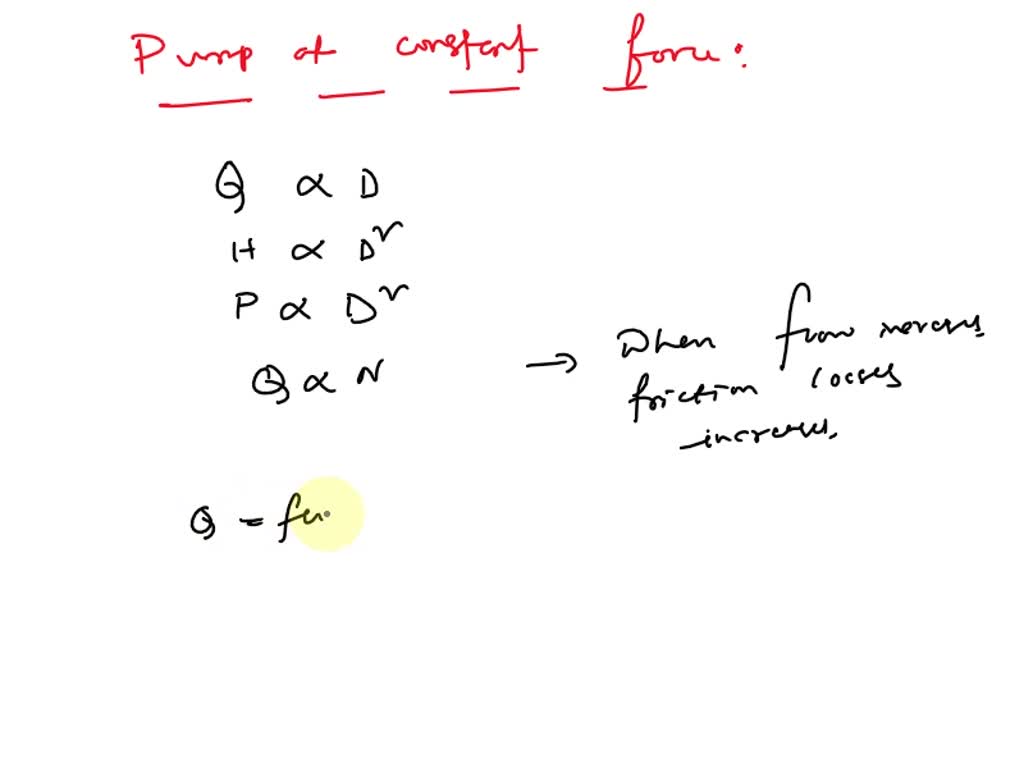 Pump at constant force:
Q ∝ D
H ∝ D²
P ∝ D²
Q ∝ N
→ When from increases
friction losses
increases.
Q = fu